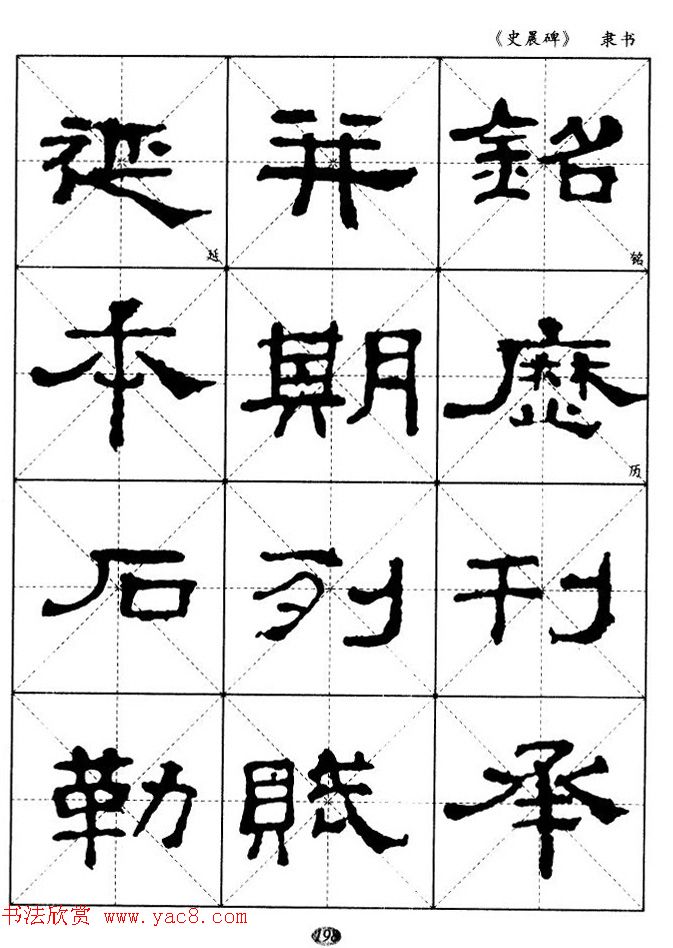 《史晨碑》 隶书
銘 铭
歷 历
刊
承
并
期
列
賤
延 延
本
石
勒
书法欣赏 www.yac8.com